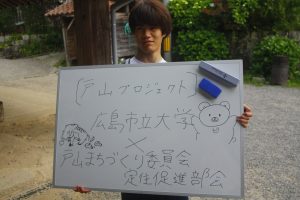 (戸山プロジェクト)
広島市立大学
×
戸山まちづくり委員会
定住促進部会